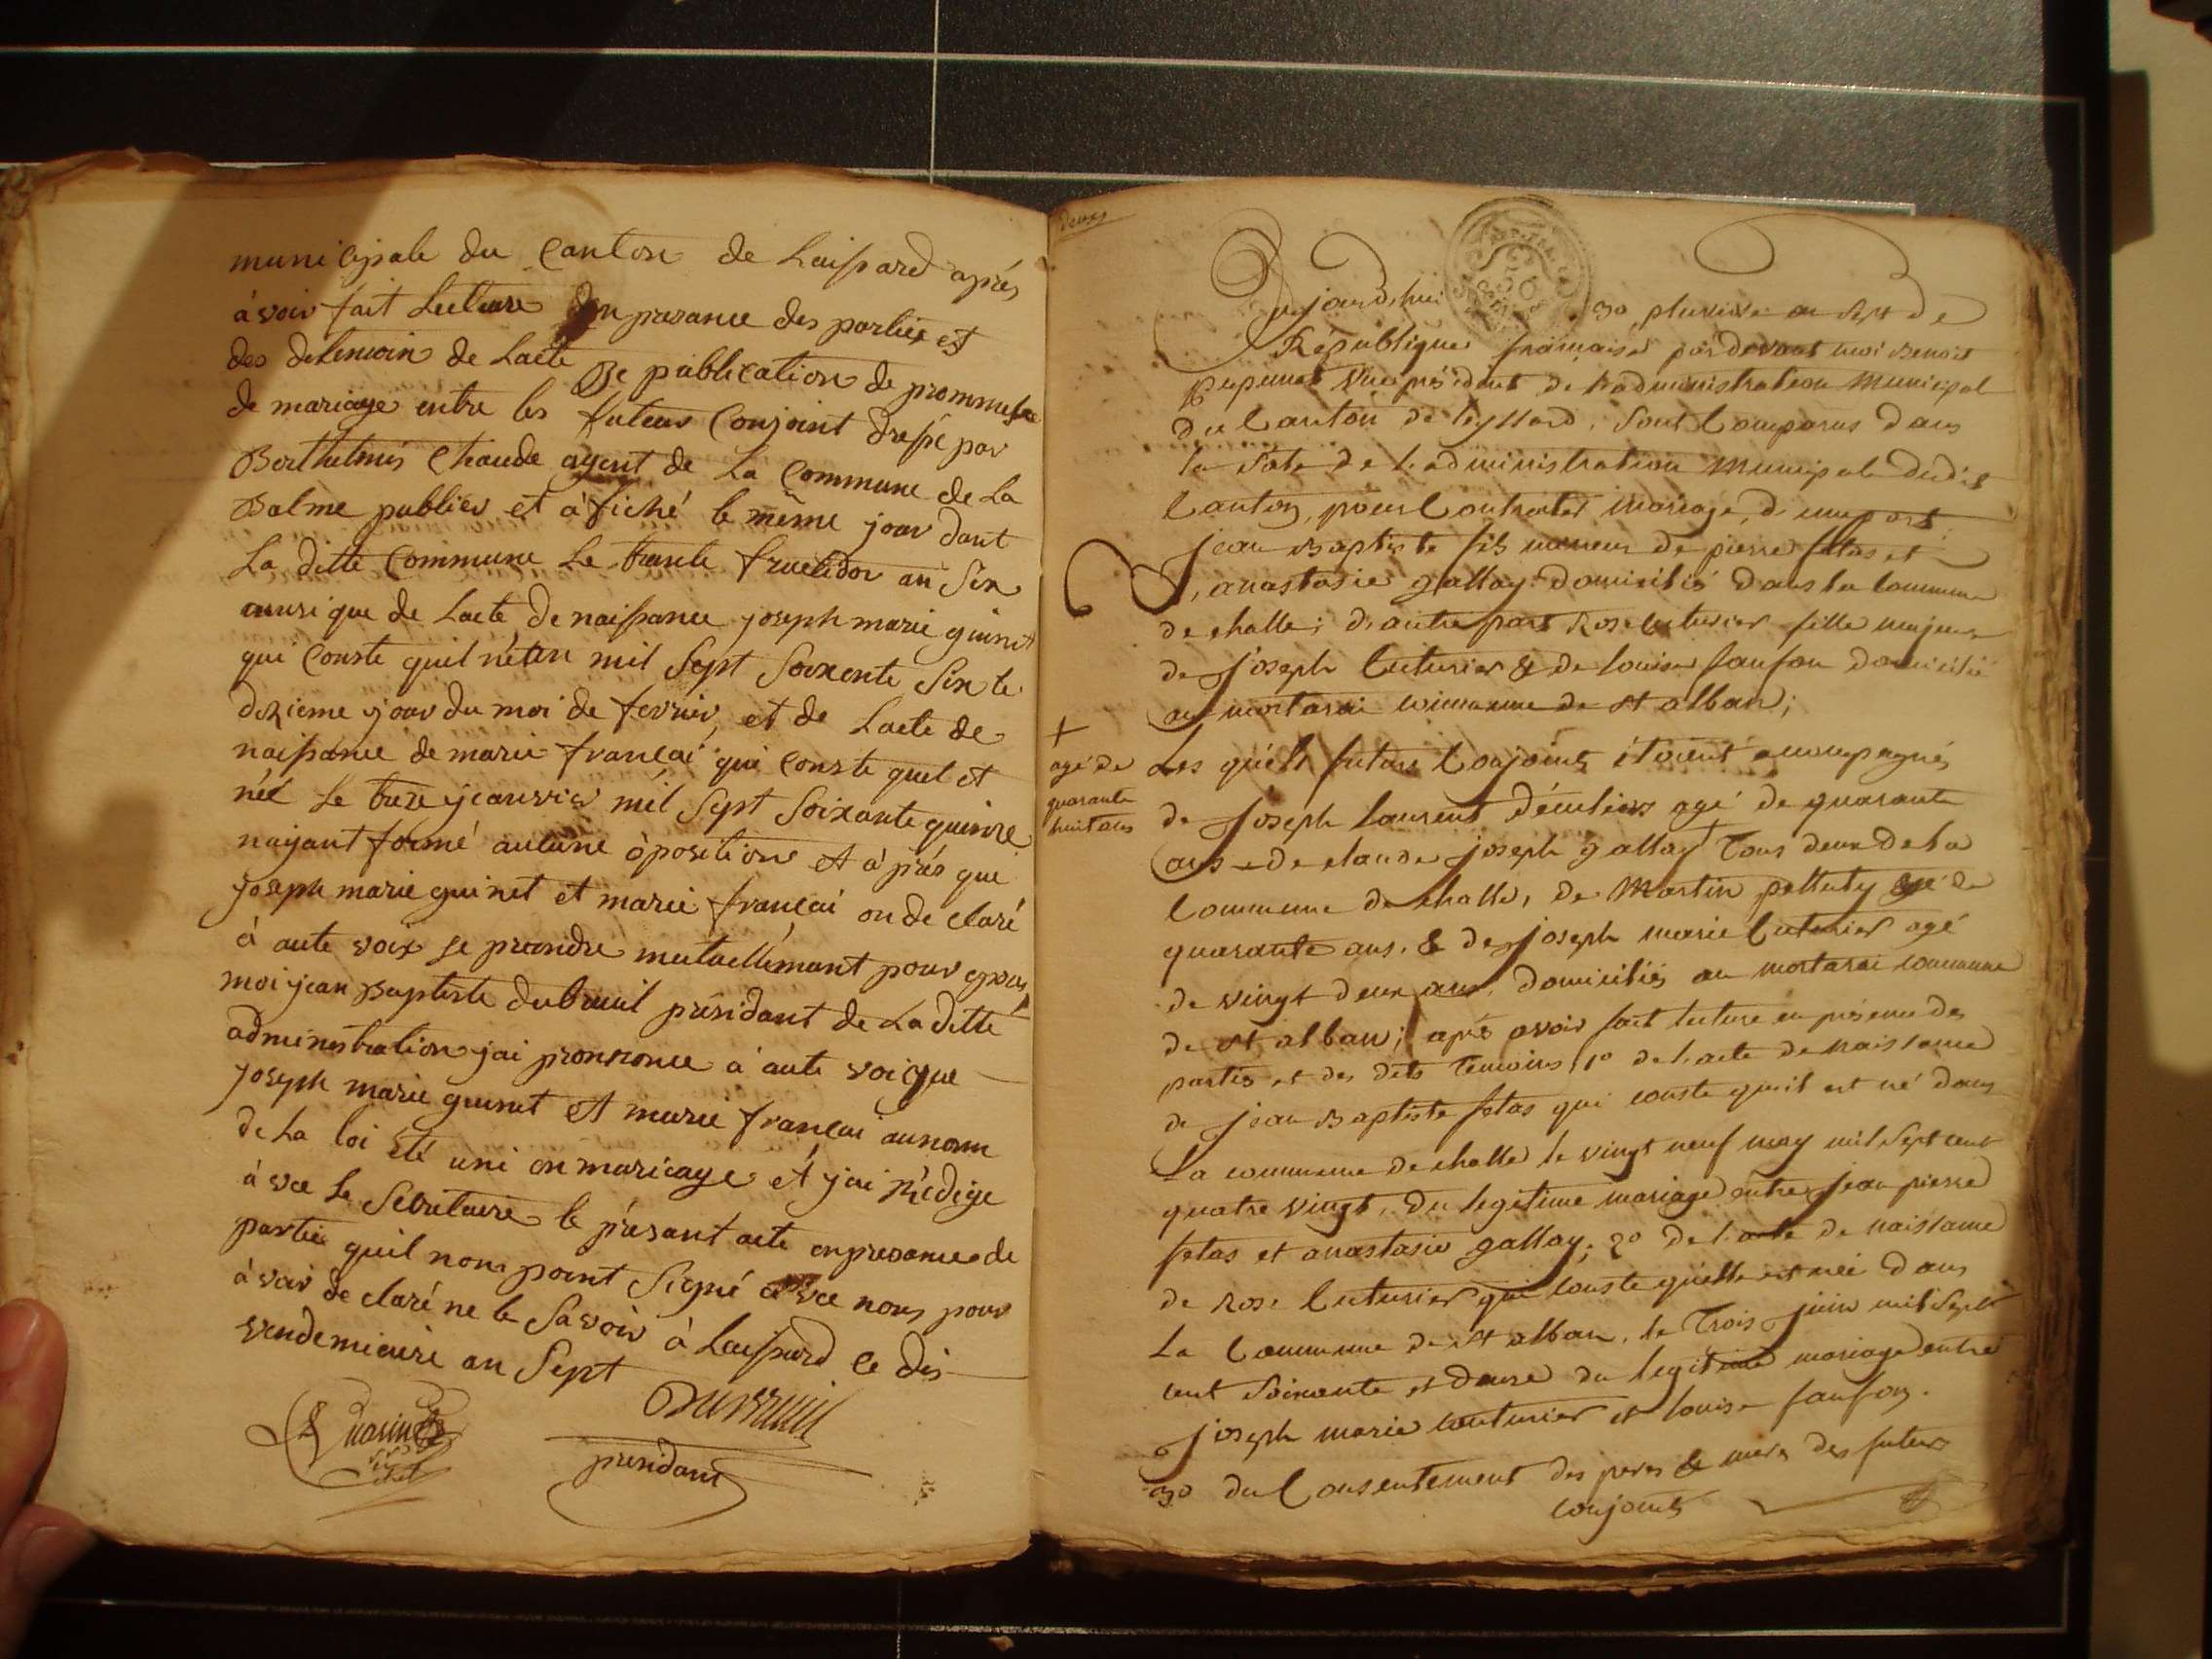 municipale du Canton de Laissard aprés
àvoir fait Lecteure den presance des partiex et
des detemoin de Lacte De publication de prommesse
de mariage entre les futeur Conjoint dressé par
Berthelmis Chaude agent de La Commune de La
Balme publier et àfiché le même jour dant
La ditte Commune Le trante fructidor an Six
ausi que de Lacte de naissance joseph marie guinet
qui Conste quil néten mil Sept Soixente Six le
dixieme jour du moi de fevrier, et de Lacte de
naissance de marie françai qui Conste quel et
néé Le treze jeanvier mil Sept Soixante quinze
nayant formé aucune òposition et a près que
joseph marie guinet et marie françai on de claré
à aute voix se prendre mutuellemant pour epous
moi jean Baptiste dubreuil présidant de La ditte
administration jai prononce à aute voi que
joseph marie guinet et marie françai aunom
de La loi été uni en maricage et jai rédige
à vec Le Secretaire le présant acte en presance de
partie quil nom point Signé a vec nous pour
à voir de claré ne le Savoir à Laissard le dis
vendemiaire an Sept
Dubreuil
presidant
deux
Aujourdhui 30 pluviose an Sept de
République française pardevant moi Benoit
vice président de l'administration Municipal
du Canton de leyssard, Sont Comparus dans
la Sale de l'administration Municipale dudit
Canton, pour Contracter mariage, d'une part
jean Baptiste fils mineur de pierre fetas et
d'anastasie gallay domicilié dans la Commune
de challe; d'autre part Rose Cuturier fille majeure
de joseph Cuturier & de louise fanfon domicilié
au mortarai commune de st alban;
Les quels futurs Conjoints étoient accompagnés
de joseph laurent agé de quarante
ans de claude joseph gallay + tous deux de la
Commune de challe, de Martin agé de
quarante ans. & de joseph marie Cuturier agé
de vingt deux ans, domiciliés au mortarai commune
de st alban; aprés avoir fait lecture en présence des
parties et des dits temoins 1° de l'acte de naissance
de jean Baptiste fetas qui conste qu'il est né dans
La commune de challe le vingt neuf may mil Sept cent
quatre vingt, du legitime mariage entre jean pierre
fetas et anastasie gallay; 2° de l'acte de naissance
de Rose Cuturier qui Conste qu'elle est née dans
La Commune de st alban, le trois juin mil Sept
cent Soixante et douze du legitime mariage entre
joseph marie couturier et louise fanfon.
3° du Consentement des peres & mere des futurs
conjoints
+
agé de
quarante
huit ans